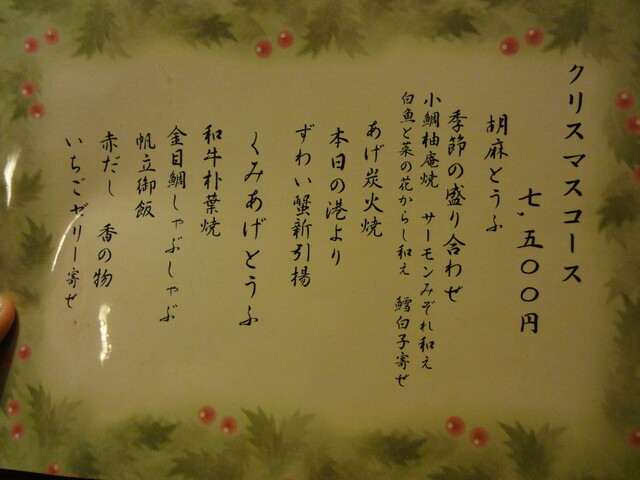 クリスマスコース
七、五〇〇円
胡麻とうふ
季節の盛り合わせ
小鯛柚庵焼 サーモンみぞれ和え
白魚と菜の花からし和え 鱈白子寄せ
あげ炭火焼
本日の港より
ずわい蟹新引揚
くみあげとうふ
和牛朴葉焼
金目鯛しゃぶしゃぶ
帆立御飯
赤だし 香の物
いちごゼリー寄せ